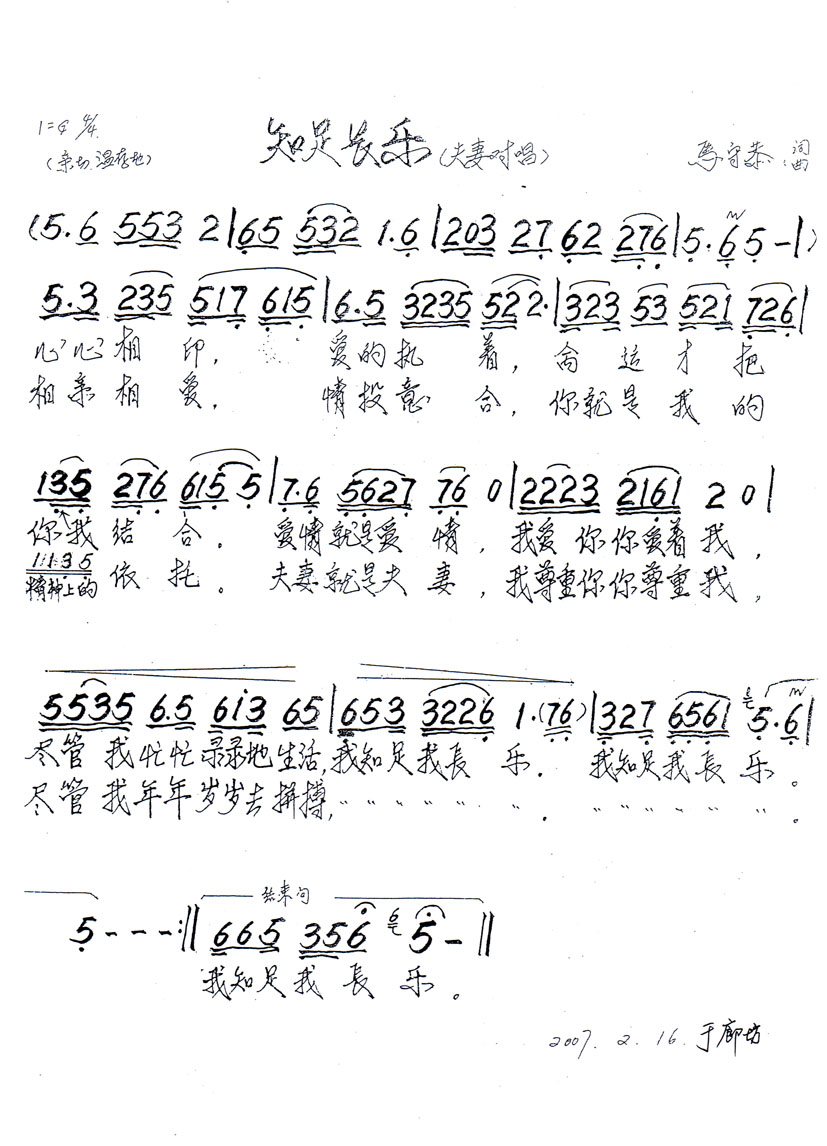 1= 4/4 知足長乐(夫妻对唱) 马守恭 词曲
(亲切 温存地)
(5.6 553 2|65 532 1.6|203 27 62 276|5.65-|)
5.3 235 517 615|6.5 3235 522.|323 53 521 726|
心心相印, 爱的执着,命运才把
相亲相爱, 情投意合,你就是我的
135 276 615 5|7.6 5627 76 0|2223 2161 2 0|
你我结合。爱情就是爱情,我爱你你爱着我,
1.1.35
精神上的依托。夫妻就是夫妻,我尊重你你尊重我,
5535 6.5 613 65|653 3226 1.(76)|327 6561 5.6|
尽管我忙忙录录地生活,我知足我長乐. 我知足我長乐。
尽管我年年岁岁去拼搏, " " " " " " . " " " " " " 。
5---:‖ 结束句
665 356 6 5-‖
我知足我長乐。
2007.2.16.于廊坊